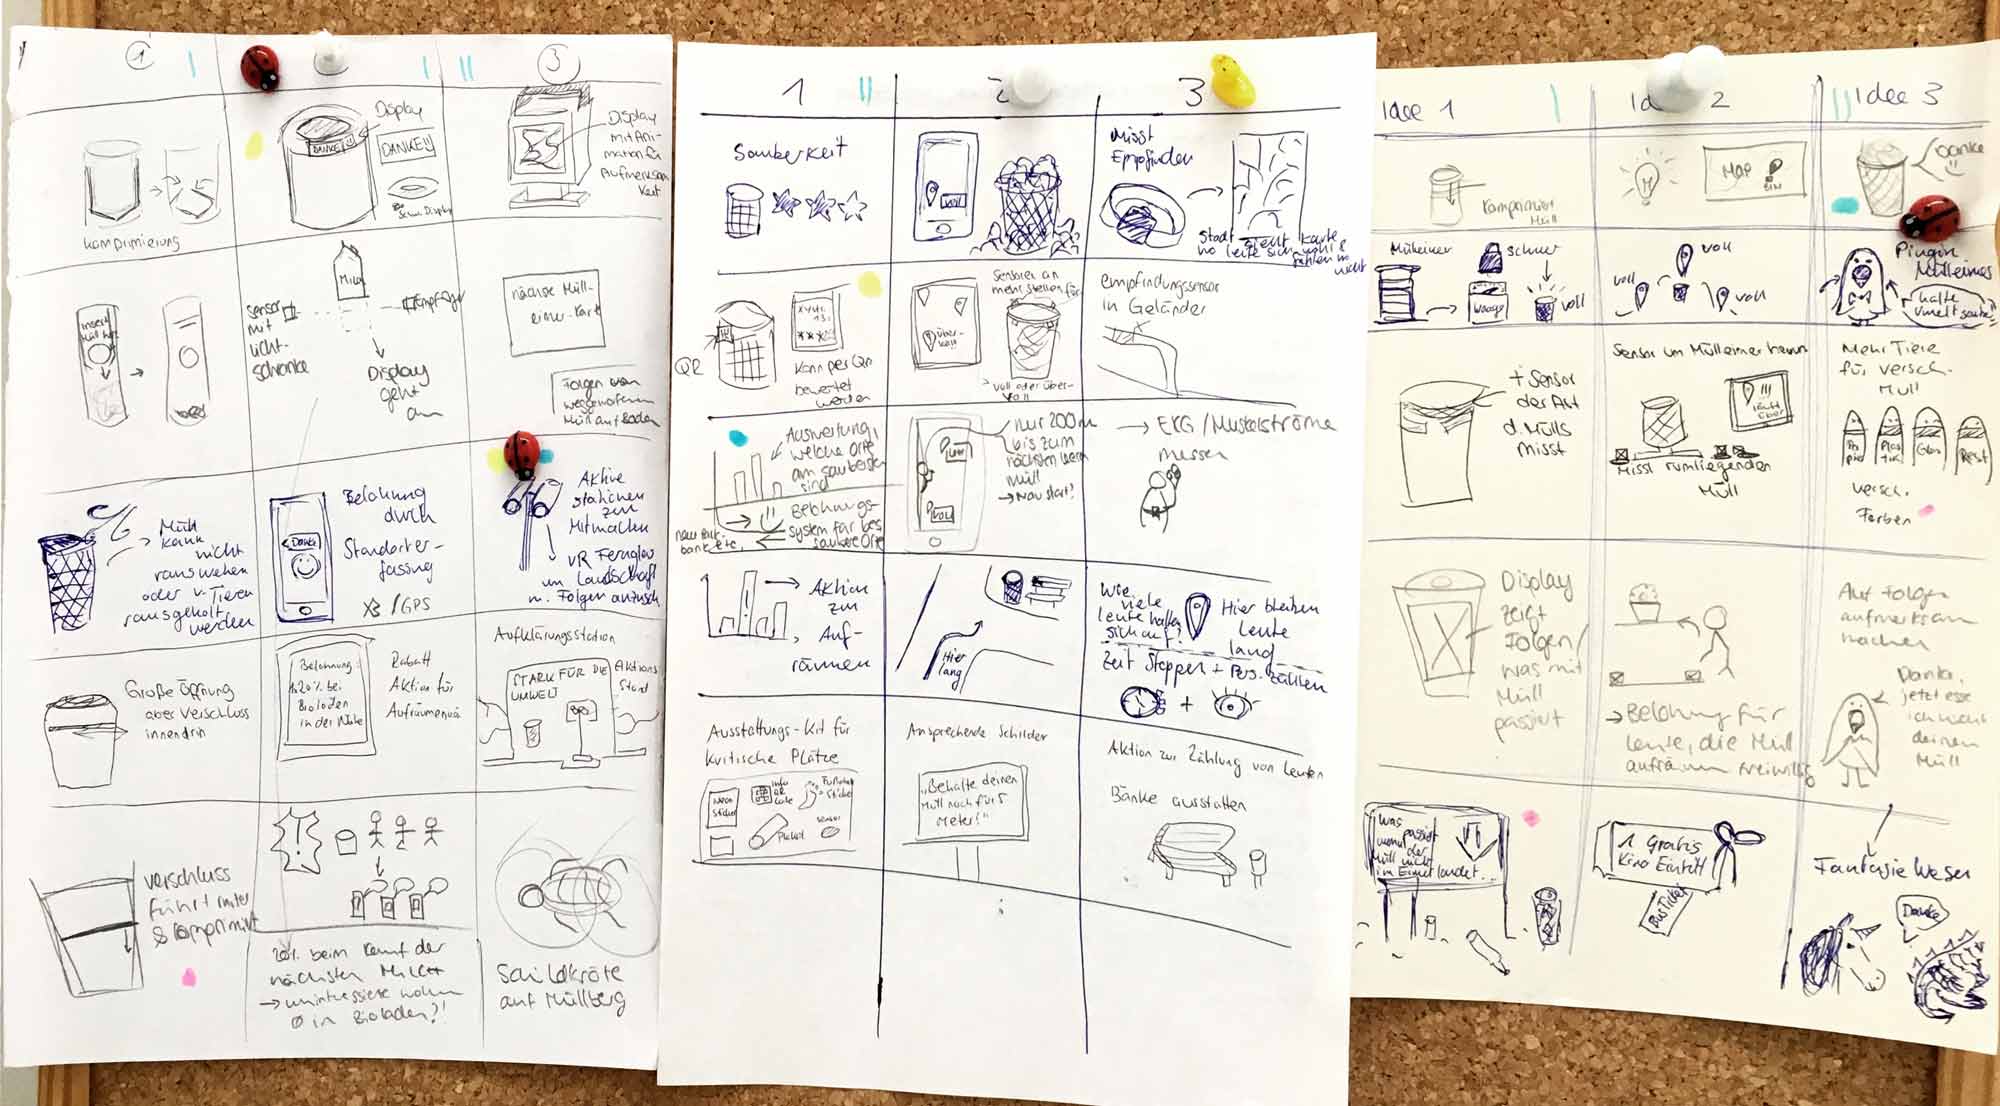 1
3
Komprimierung
Display
DANKE!!
DANKE
Display
mit Ani-
mation für
Aufmerksam
keit
insert
Milch
Sensor
mit
Licht-
schranke
Empfänger
Display
geht
an
nächste Müll-
eimer-Karte
Folgen von
weggeworfenem
Müll auf Boden
Müll
kann
nicht
rauswehen
oder v. Tieren
rausgeholt
werden
Danke
Belohnung
durch
Standorter-
fassung
/GPS
Aktive
stationen
zum
Mitmachen
VR Fernglas
um Landschaft
m. Folgen anzusch.
Große Öffnung
aber Verschluss
innendrin
Belohnung:
20% bei
Bioladen
in der Nähe
Rabatt
Aktion für
Aufräumen
Aufklärungsstation
STARK FÜR DIE
UMWELT
Aktions
Stand
Verschluss
führt runter
& komprimiert
!
20% beim Kauf der
nächsten Milch
→ uninteressiere wohnen
Ø in Bioladen?!
Schildkröte
auf Müllberg
1
2
3
Sauberkeit
voll
Misst
Empfinden
Stadt sieht Karte
wo leute sich wohl &
fühlen wo
nicht
QR
Kann per QR
bewertet
werden
über-
voll
Sensoren an
mehr stellen für
voll oder über-
voll
empfindungssensor
in Geländer
Auswertung,
welche Orte
am saubersten
sind
Belohnungs-
system für bes.
saubere Orte
neue Park-
bank etc.
leer
voll
nur 200m
bis zum
nächsten leeren
Müll
→ Nav start?
→ EKG / Muskelströme
messen
Aktion
zur
Auf-
räumen
Hier
lang
Wie
viele
leute halten
sich auf?
Hier bleiben
Leute
lang
Zeit Stoppen + Pers. zählen
+
Ausstattungs-Kit für
kritische Plätze
Info
QR
Code
Fußabdr.
Sticker
Plakat
Sensor
Ansprechende Schilder
„Behalte deinen
Müll noch für 5
Meter!"
Aktion zur Zählung von Leuten
Bänke ausstatten
Idee 1
2
Idee 3
Komprimiert
Müll
MAP
BIN
Danke
Mülleimer
schwer
Wooop
voll
voll
voll
voll
Pinguin
Mülleimer
halte
Umwelt sauber
+ Sensor
der Art
d. Mülls
misst
Sensor um Mülleimer herum
!!!
läuft
über
Misst rumliegenden
Müll
Mehr Tiere
für versch.
Müll
Pa
pier
Plas
tik
Glas
Rest
versch.
Farben
Display
zeigt
Folgen/
was mit
Müll
passiert
→ Belohung für
leute, die Müll
aufräumen freiwillig
Auf Folgen
aufmerksam
machen
Danke,
jetzt esse
ich nicht
deinen
Müll
Was
passiert
wenn der
Müll nicht
im Eimer landet...
1 Gratis
Kino Eintritt
Bus Ticket
Fantasie Wesen
Danke